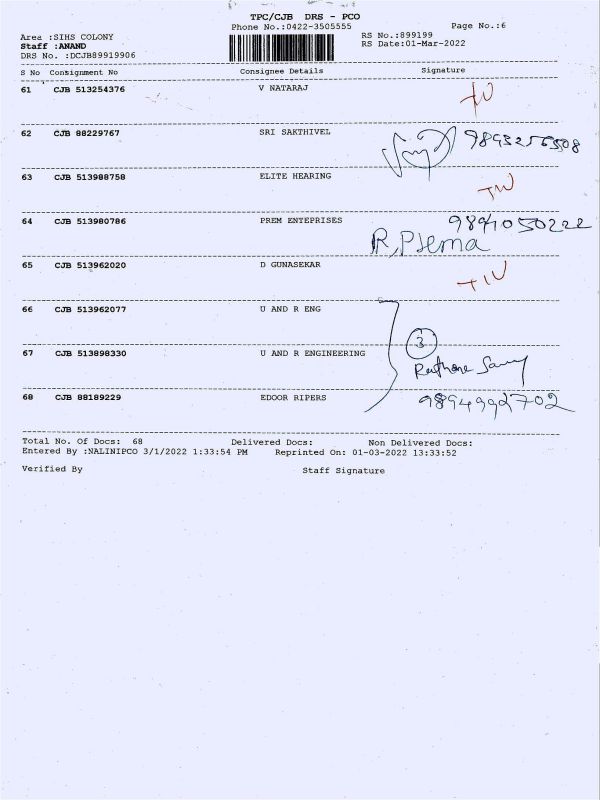 TPC/CJB DRS - PCO
Phone No.:0422-3505555 Page No.:6
Area :SIHS COLONY RS No.:899199
Staff :ANAND RS Date:01-Mar-2022
DRS No. :DCJB89919906
S No Consignment No Consignee Details Signature
61 CJB 513254376 V NATARAJ
62 CJB 88229767 SRI SAKTHIVEL
63 CJB 513988758 ELITE HEARING
64 CJB 513980786 PREM ENTEPRISES
R. Prema
65 CJB 513962020 D GUNASEKAR
66 CJB 513962077 U AND R ENG
3
67 CJB 513898330 U AND R ENGINEERING
68 CJB 88189229 EDOOR RIPERS
Total No. Of Docs: 68 Delivered Docs: Non Delivered Docs:
Entered By :NALINIPCO 3/1/2022 1:33:54 PM Reprinted On: 01-03-2022 13:33:52
Verified By Staff Signature